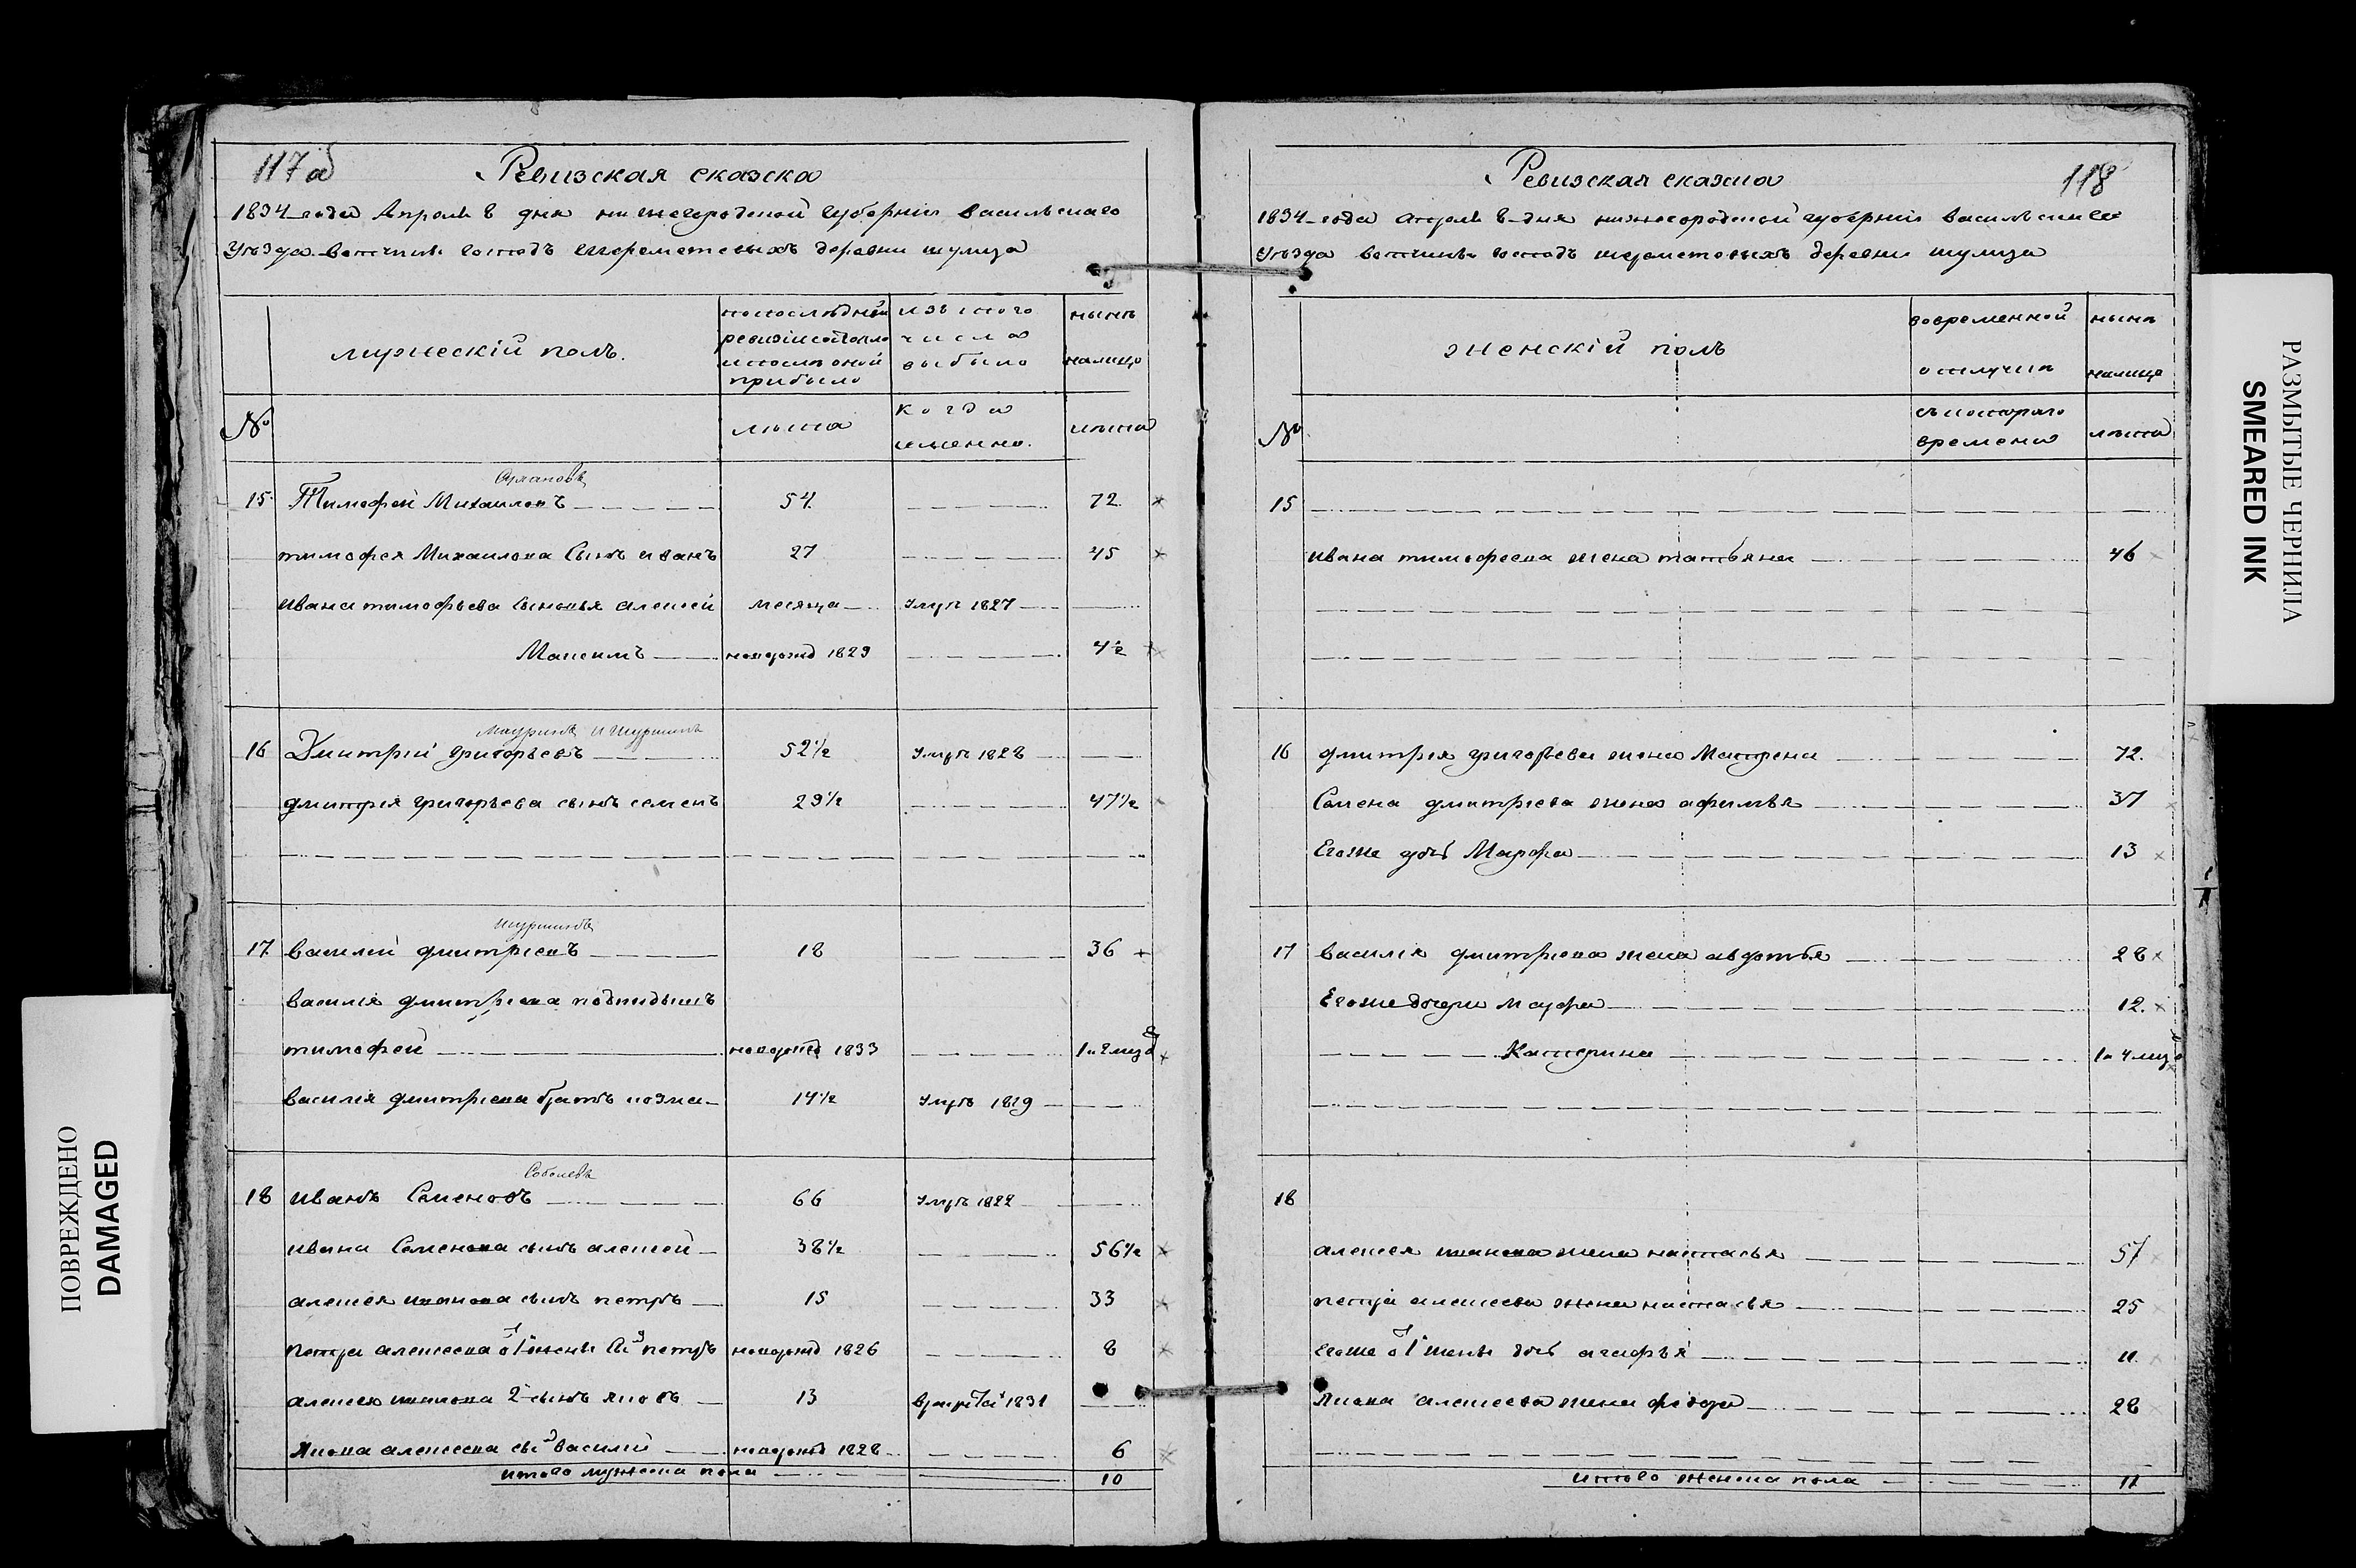 117 об
Ревизская сказка
1834 года Апреля 8 дня нижегородской губернии васильскаго
Уезда вотчины господъ шереметевыхъ деревни шулиза
мужескій полъ.
по последней
ревизіи состояло
и после оной
прибыло
изъ того
числа
выбыло
ныне
налицо
№
лета
когда
именно.
лета
15 Тимофей Михаиловъ 54 72
тимофея Михаилова Сынъ иванъ 27 45
Ивана тимофьева Сыновья алексей месяца Умре 1827
Максимъ новорожд 1829 4½
Мауринъ и Шуршинъ
16 Дмитрій григорьевъ 52½ Умре 1828
дмитрія григорьева сынъ семенъ 29½ 47½
Шуршинъ
17 василій дмитріевъ 18 36
василія дмитріева подкидышъ
тимофей новорожд 1833
василія дмитріева братъ козма 14½ Умре 1819
Соболевъ
18 иванъ Семеновъ 66 Умре 1822
ивана Семенова сынъ алексей 38½ 56½
алексея иванова сынъ петръ 15 33
петра алексеева от 1 жены Сы петръ новорожд 1826 8
алексея иванова 2 сынъ яковъ 13 1831
якова алексеева сы василій новорожд 1828 6
итого мужеска пола 10
Ревизская сказка
118
1834 года апреля 8 дня нижегородской губерніи васильскаго
Уезда вотчины господъ шереметевыхъ деревни шулиза
женскій полъ
во временной
отлучке
ныне
налицо
№
съ котораго
времени
лета
15
ивана тимофеева жена татьяна 46
16 дмитрія григорьева жена Матрена 72.
Семена дмитріева жена афимья 37
Егоже дочь Марфа 13
17 василія дмитріева жена авдотья 28
Егоже дочери Марфа 12.
Катерина
18
алексея иванова жена настасья 57
петра алексеева жена настасья 25
егоже от 1 жены дочь агафья 11
Якова алексеева жена федора 28
итого женска пола 11
ПОВРЕЖДЕНО
DAMAGED
РАЗМЫТЫЕ ЧЕРНИЛА
SMEARED INK